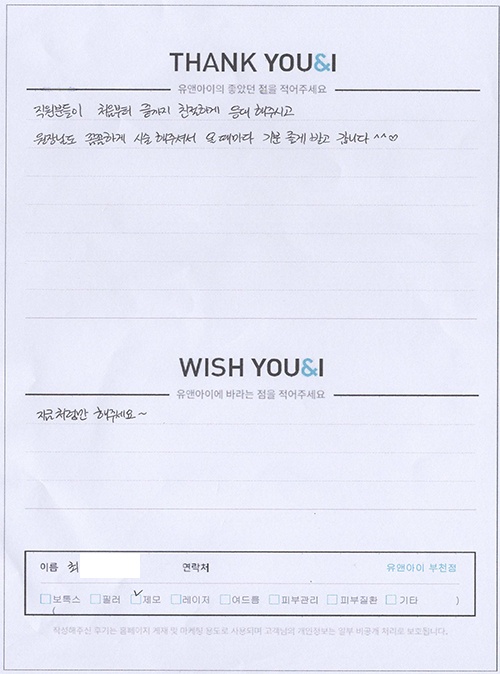 THANK YOU&I
유앤아이의 좋았던 점을 적어주세요
직원분들이 처음부터 끝까지 친절하게 응대 해주시고
원장님도 꼼꼼하게 시술 해주셔서 올 때마다 기분 좋게 받고 갑니다 ^^♡
WISH YOU&I
유앤아이에 바라는 점을 적어주세요
지금처럼만 해주세요~
이름 최 연락처 유앤아이 부천점
보톡스 필러 제모 레이저 여드름 피부관리 피부질환 기타
( )
작성해주신 후기는 홈페이지 게재 및 마케팅 용도로 사용되며 고객님의 개인정보는 일부 비공개 처리로 보호됩니다.